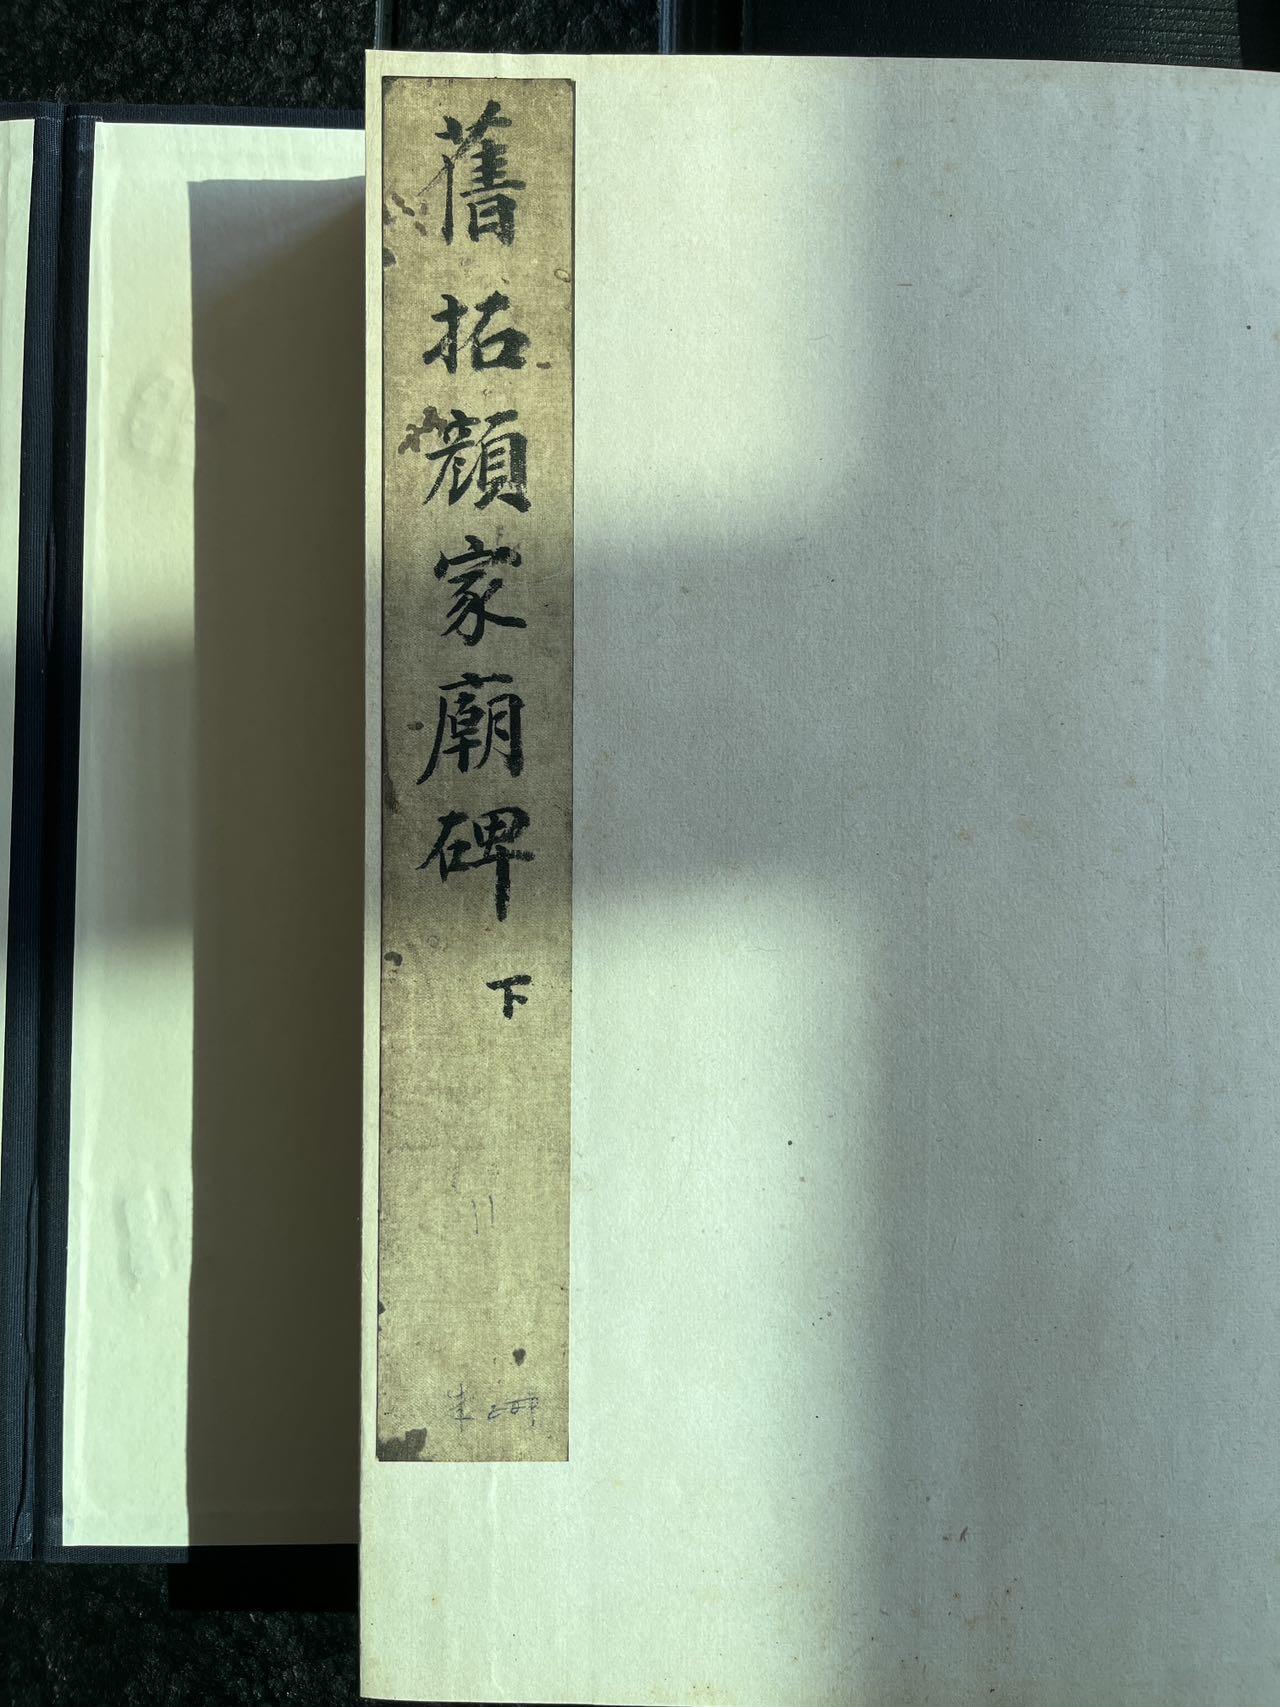 舊拓顏家廟碑
下